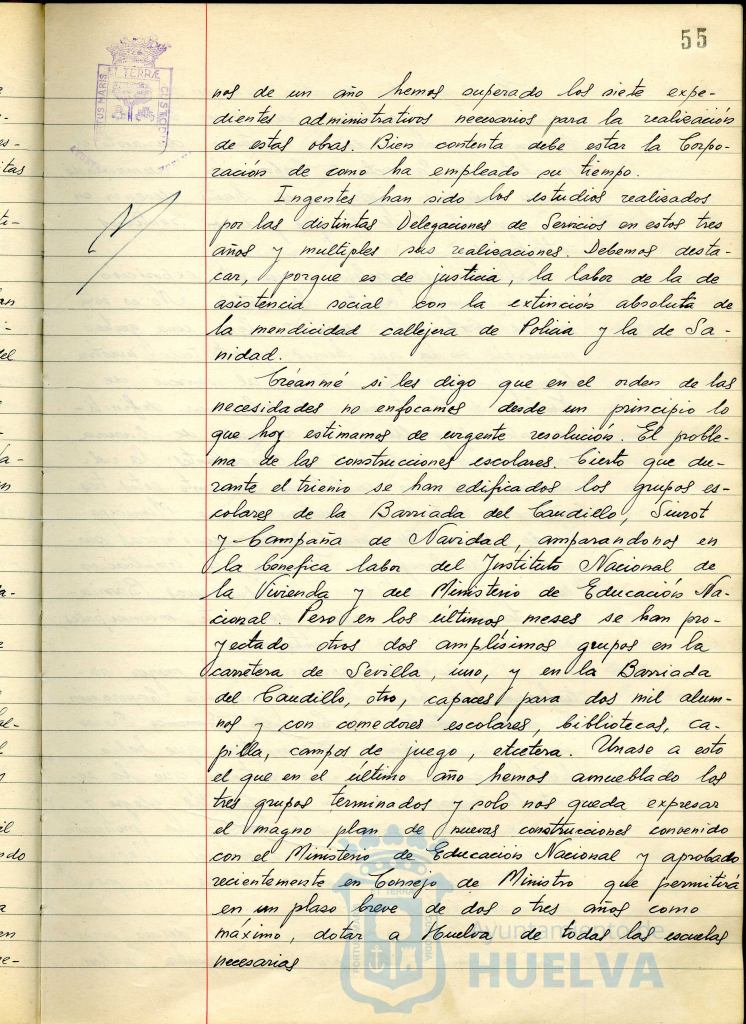 55
nos de un año hemos superado los siete expe-
dientes administrativos necesarios para la realización
de estas obras. Bien contenta debe estar la Corpo-
ración de como ha empleado su tiempo.
Ingentes han sido los estudios realizados
por las distintas Delegaciones de Servicios en estos tres
años y multiples sus realizaciones. Debemos desta-
car, porque es de justicia, la labor de la de
asistencia social con la extinción absoluta de
la mendicidad callejera de Policia y la de Sa-
nidad.
Créanmé si les digo que en el orden de las
necesidades no enfocamos desde un principio lo
que hoy estimamos de urgente resolución. El proble-
ma de las construcciones escolares. Cierto que du-
rante el trienio se han edificados los grupos es-
colares de la Barriada del Caudillo, Siurot
y Campaña de Navidad, amparandonos en
la benefica labor del Instituto Nacional de
la Vivienda y del Ministerio de Educación Na-
cional. Pero en los últimos meses se han pro-
yectado otros dos amplísimos grupos en la
carretera de Sevilla, uno, y en la Barriada
del Caudillo, otro, capaces para dos mil alum-
nos y con comedores escolares, bibliotecas, ca-
pilla, campos de juego, etcetera. Unase a esto
el que en el último año hemos amueblado los
tres grupos terminados y solo nos queda expresar
el magno plan de nuevas construcciones convenido
con el Ministerio de Educación Nacional y aprobado
recientemente en Consejo de Ministro que permitirá
en un plazo breve de dos o tres años como
máximo, dotar a Huelva de todas las escuelas
necesarias
Ayuntamiento de
HUELVA